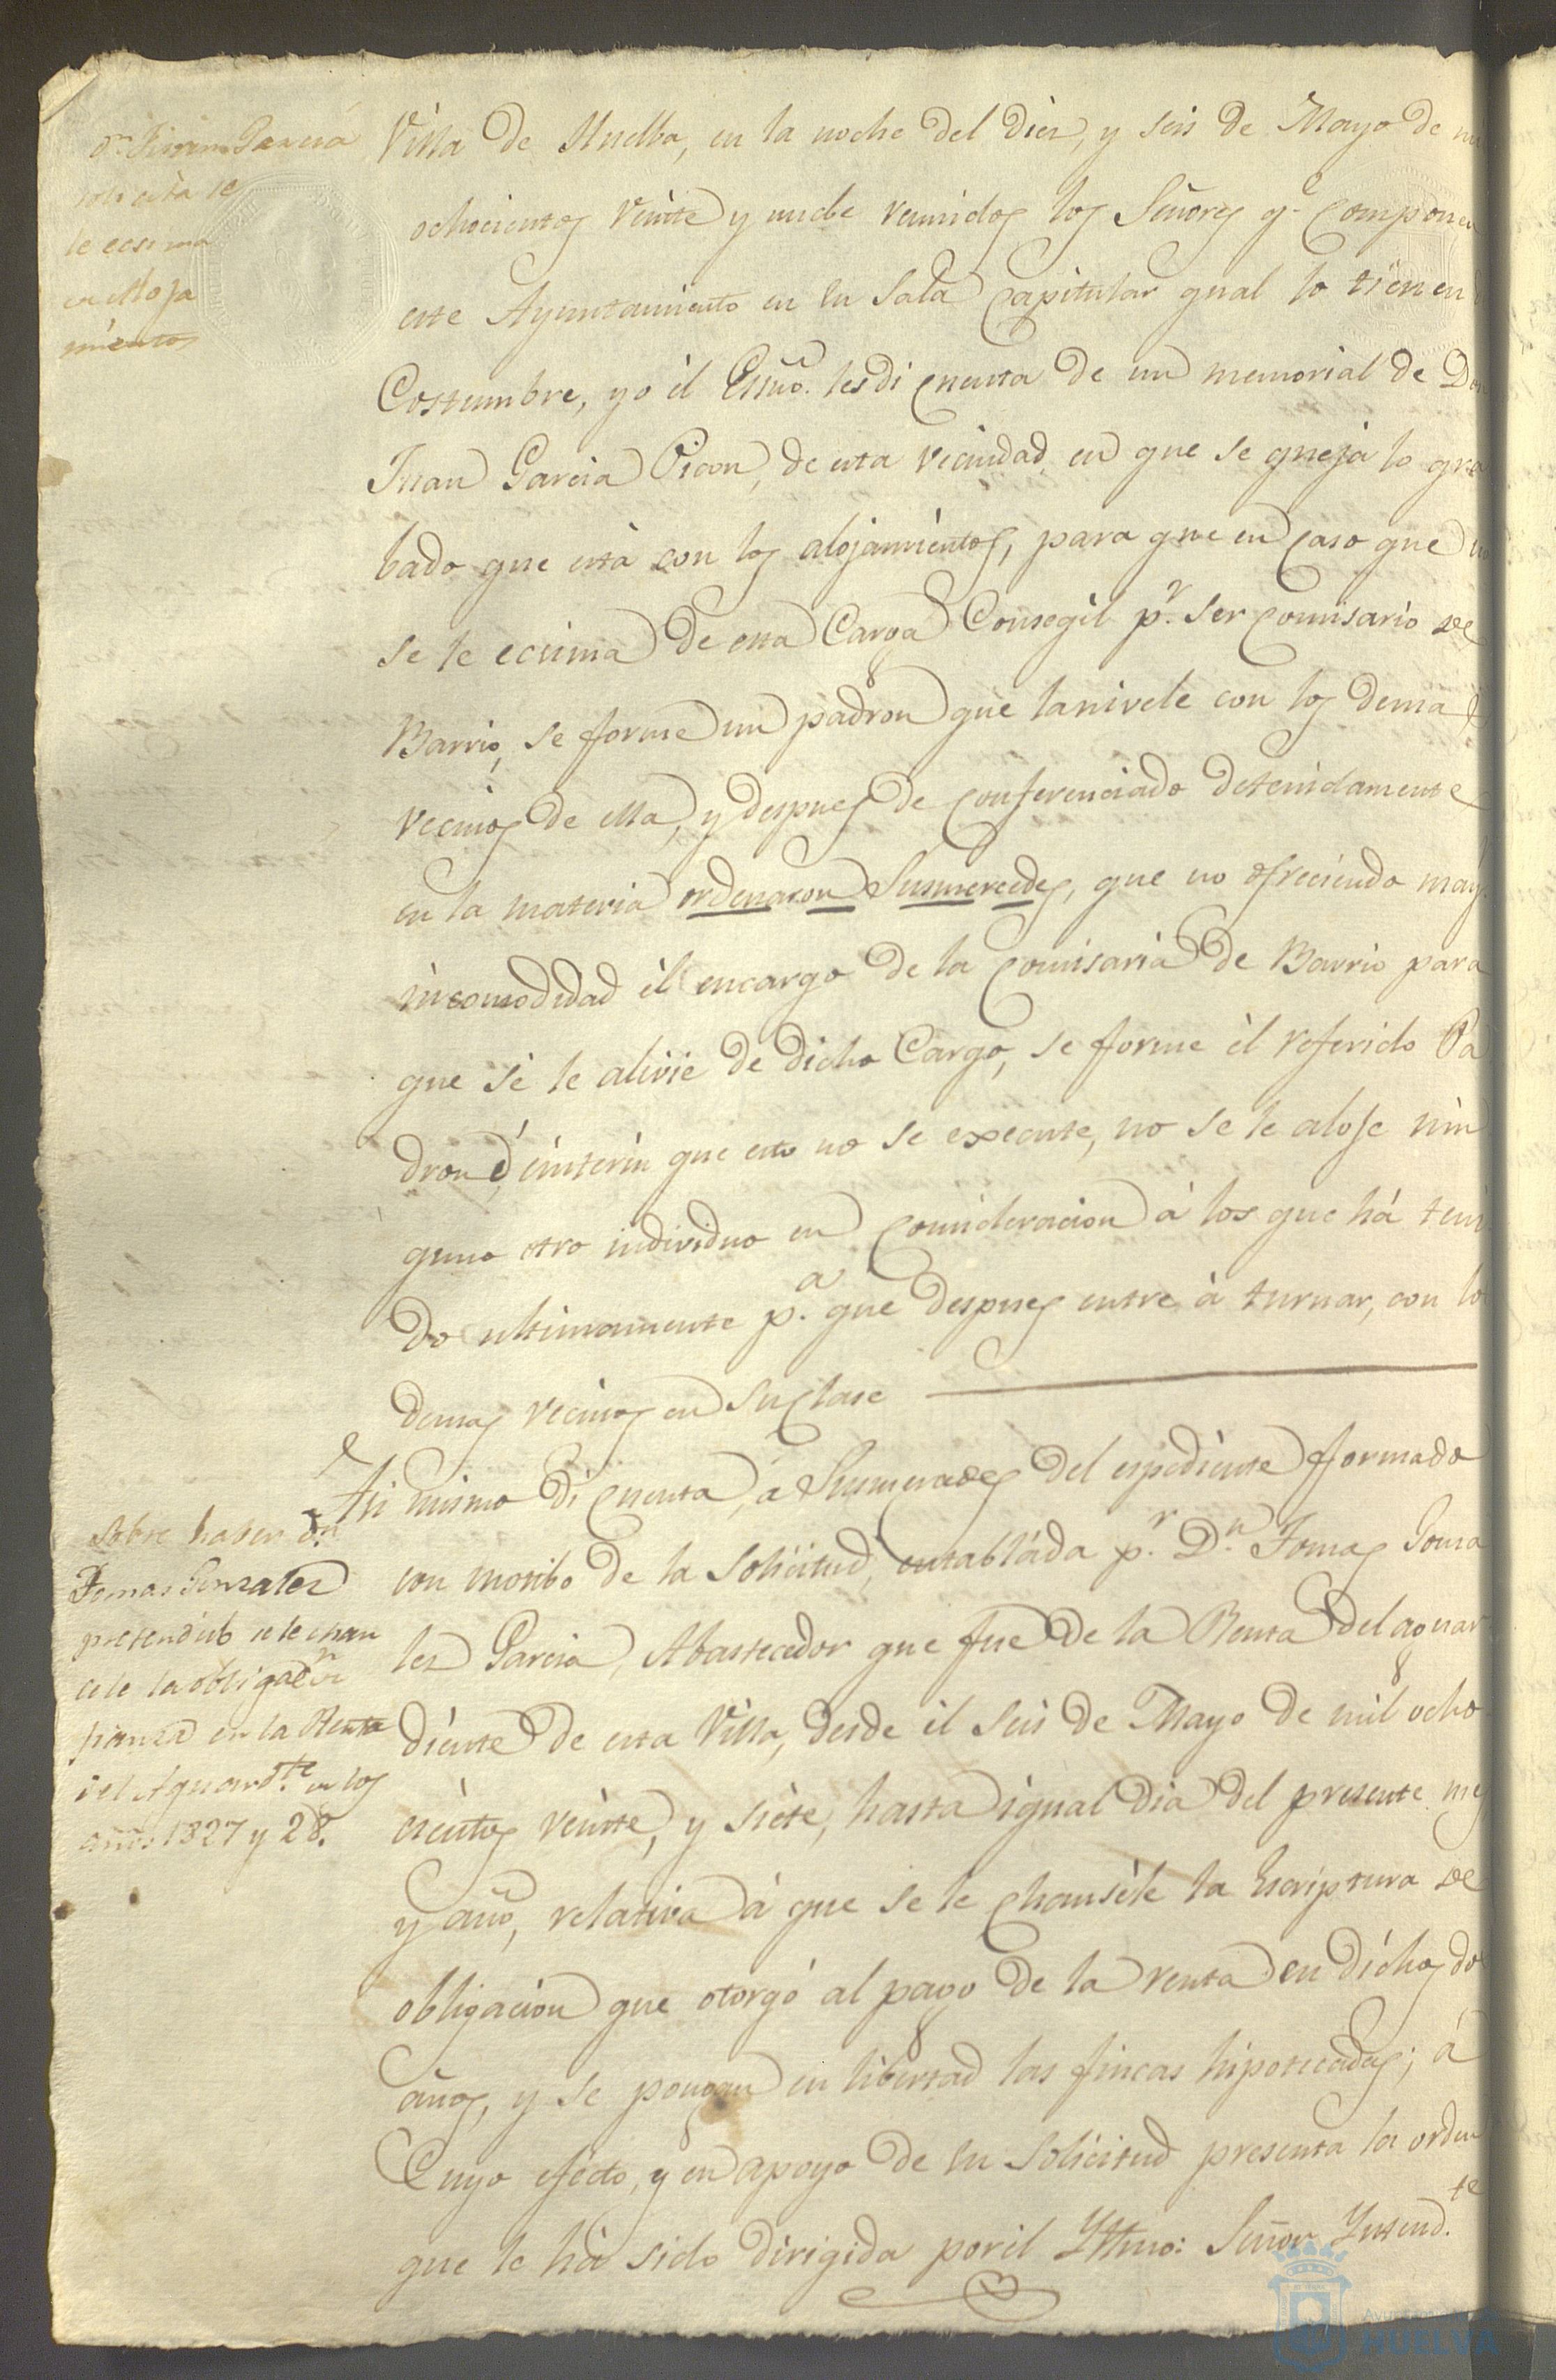 Dn. Juan Garcia
solicita se
le ecsima
en Aloja
mientos
Villa de Huelba, en la noche del diez, y seis de Mayo de
ochocientos veinte y nuebe reunidos los Señores qe. componen
este Ayuntamiento en su Sala Capitular qual lo tienen
Costumbre, yo él Essno. les di cuenta de un memorial de Don
Juan Garcia Picon, de esta vecindad en que se queja lo gra
bado que està con los alojamièntos, para que en caso que no
se le ecsima de esta Carga Consegil pr. ser Comisario de
Barrio, se forme un padron que la nivele con los demas
vecinos de ella, y despues de conferenciado detenidamente
en la materia ordenaron Susmercedes, que no ofreciendo mayr.
incomodidad èl encargo de la Comisaria de Barrio para
que se le alivie de dicho Cargo, se forme èl referido Pa
dron é, ínterin que esto no se execute, no se le aloje nin
guno otro individuo en consideracion à los que há teni
do ultimamente pa. que despues entre à turnar, con lo
demas vecinos en su clase
Asi mismo dì cuenta, à Susmercedes del espediente fformado
con motibo de la Solicitud, entablàda pr. Dn. Tomas Gonza
lez Garcia, Abastecedor que fue de la Renta del aguar
diente de esta Villa, desde èl seis de Mayo de mil ocho
cièntos veinte, y siète, hasta igual dia del presente mes
y año, relativa à que se le chansèle la Escriptura de
obligaciòn que otorgó al pago de la renta en dichos dos
años, y se pongan en libertad las fincas hipotecadas; à
Cuyo efecto, y en apoyo de su Solicitud presenta la orden
que le hà sido dirigida por èl Yltmo: Señor Yntendte.
Sobre haber Dn.
Tomas Gonzalez
pretendido se le chan
cele la obligacn. de
fianza en la Renta
del Aguardte. en los
años 1827 y 28.
HUELVA